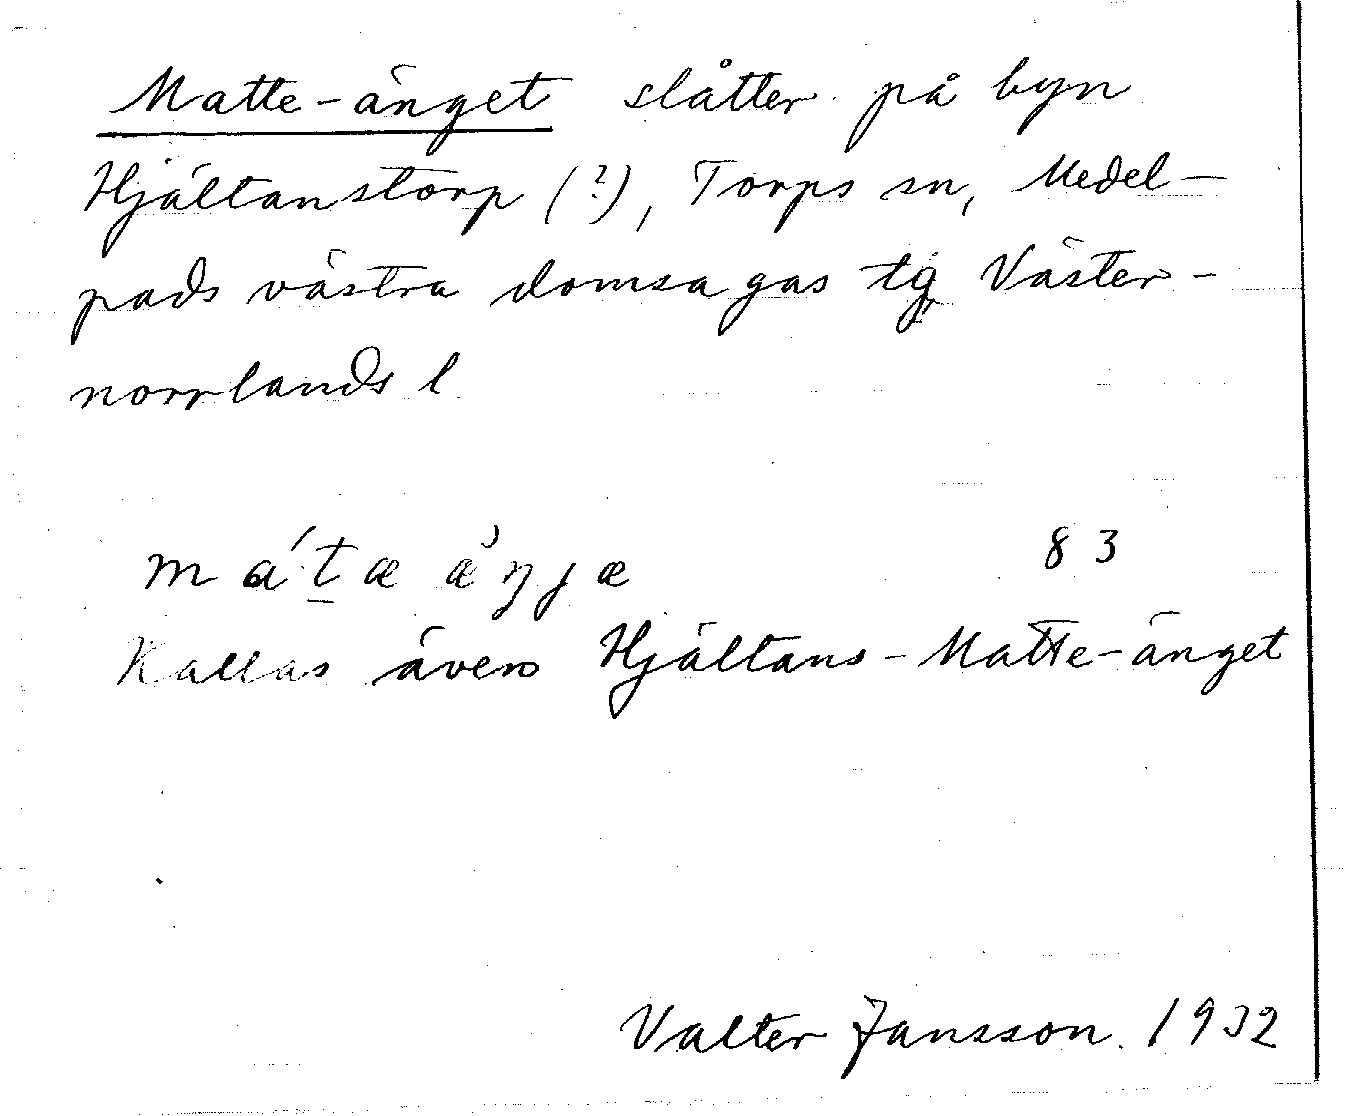 Matte-änget slåtter på byn
Hjältanstorp (?), Torps sn, Medel-
pads västra domsagas tg, Väster-
norrlands l
má't̠æ æ̀ŋjæ 83
Kallas även Hjältans-Matte-änget
Valter Jansson. 1932